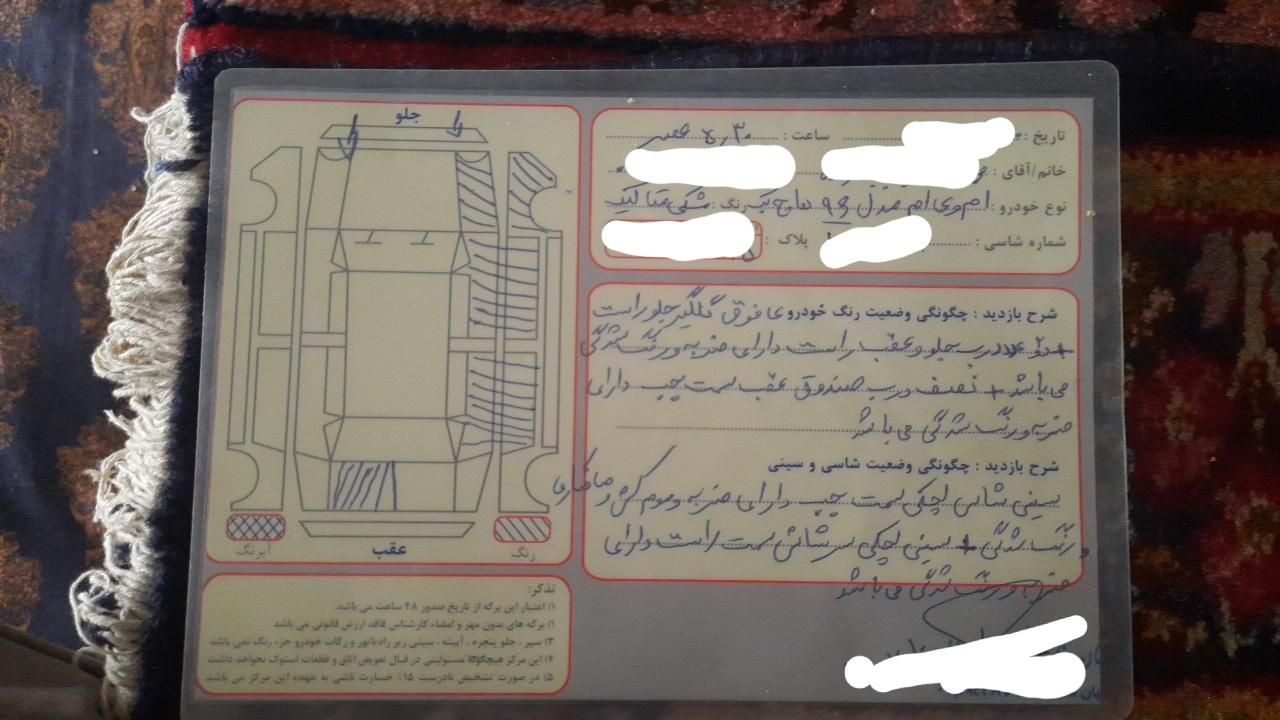 تاریخ :
ساعت : ۵,۳۰ عصر
خانم/آقای :
نوع خودرو : ام وی ام مدل ۹۶ هاچ بک رنگ : مشکی متالیک
شماره شاسی : پلاک :
شرح بازدید : چگونگی وضعیت رنگ خودرو ما فوق گلگیر جلو راست
+ دو عدد درب جلو و عقب راست دارای ضربه و رنگ شدگی
می باشد + نصف درب صندوق عقب سمت چپ دارای
ضربه و رنگ شدگی می باشد
شرح بازدید : چگونگی وضعیت شاسی و سینی
سینی شاسی لچکی سمت چپ دارای ضربه و موم کش و صافکاری
و رنگ شدگی + سینی لچکی سر شاسی سمت راست دارای
ضربه و رنگ شدگی می باشد
جلو
عقب
رنگ
آبرنگ
تذکر:
۱) اعتبار این برگه از تاریخ صدور ۴۸ ساعت می باشد.
۱) برگه های بدون مهر و امضاء کارشناس فاقد ارزش قانونی می باشد
۳) سپر ، جلو پنجره ، آیینه ، سینی زیر رادیاتور و رکاب خودرو جزء رنگ نمی باشد
۴) این مرکز هیچگونه مسئولیتی در قبال تعویض اتاق و قطعات استوک نخواهد داشت
۵) در صورت تشخیص نادرست ۱۵٪ خسارت ناشی به عهده این مرکز می باشد